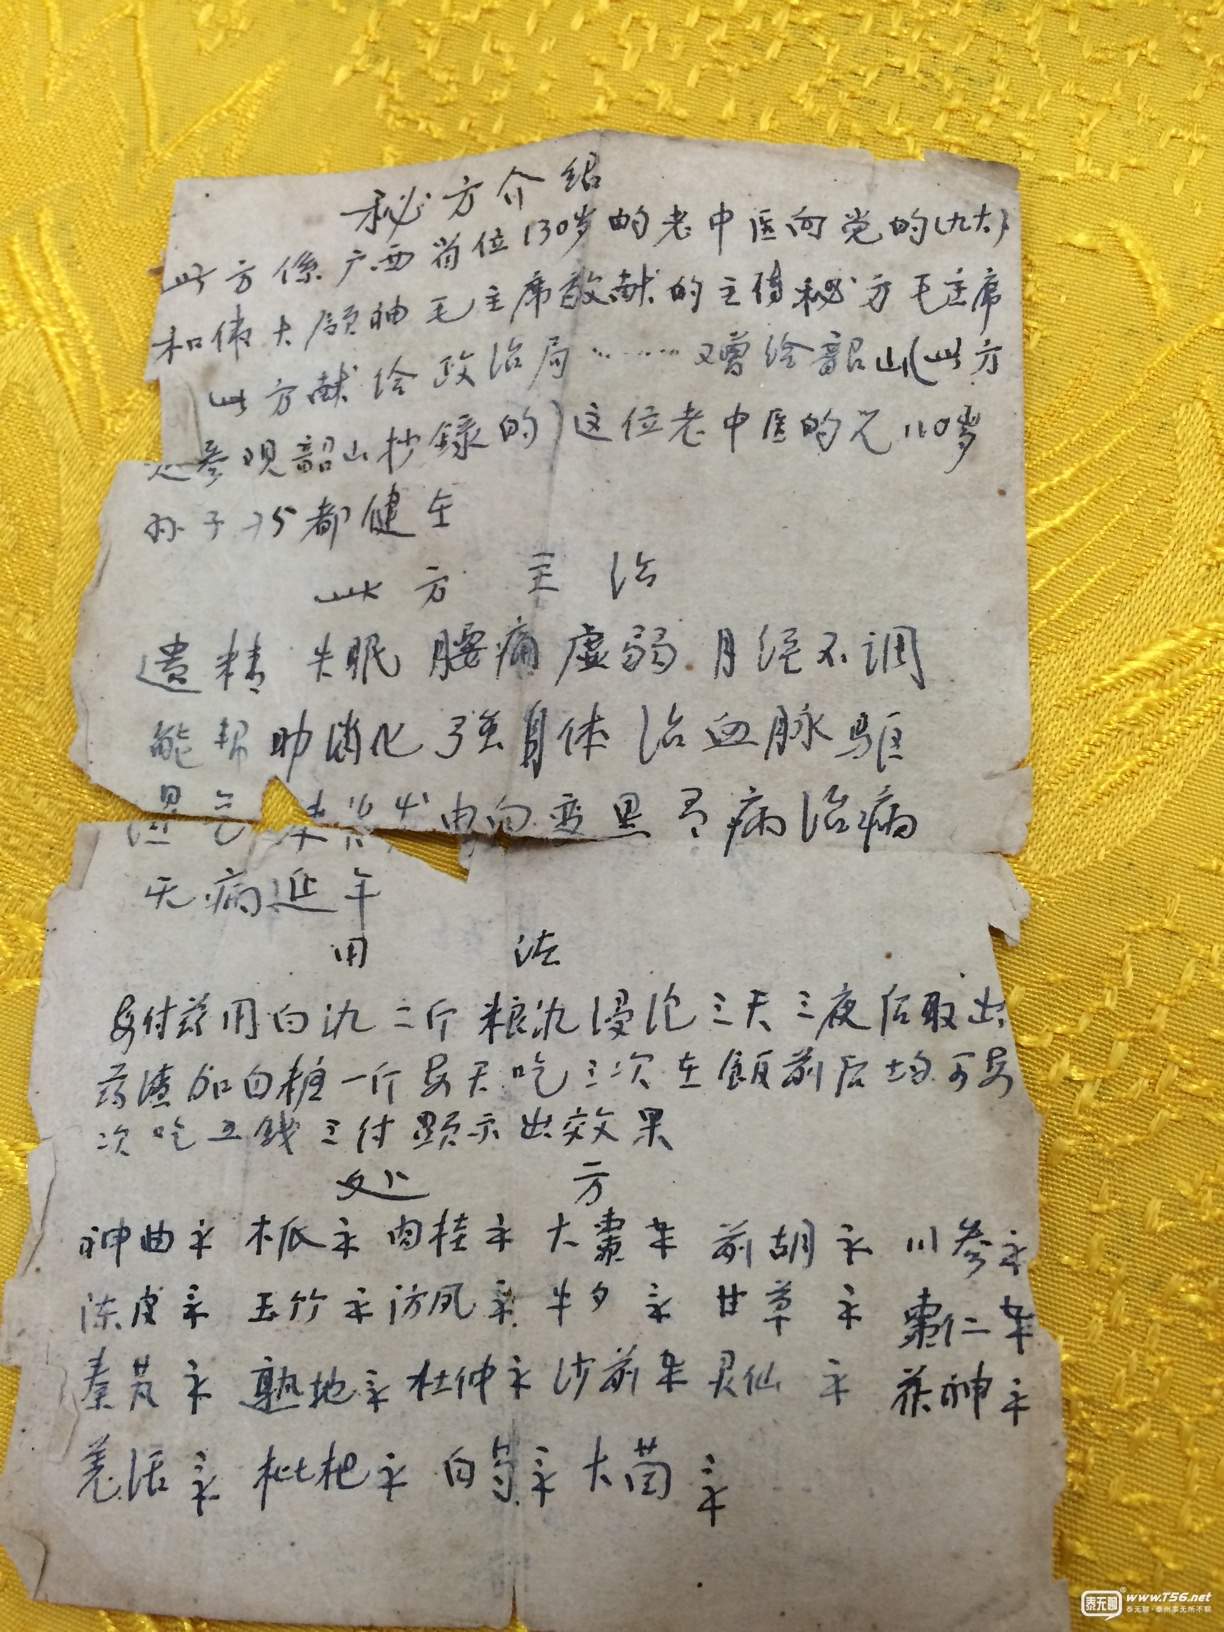 秘方介绍
此方係广西省位130岁的老中医向党的(九大)
和伟大领袖毛主席敬献的主传秘方毛主席
此方献给政治局…………又曾给韶山(此方
是参观韶山抄録的)这位老中医的儿110岁
孙子75都健在
此方主治
遗精 失眠 腰痛 虚弱 月经不调
能帮助消化 强身体 治血脉 驱
湿气 由白变黑 胃病治病
无病延年
用 法
每付药用白氿二斤粮氿浸沦三天三夜后取出
药渣加白糖一斤每天吃三次在飯前后均可每
次吃五钱三付顕示出效果
处 方
神曲 木瓜 肉桂 大棗 前胡 川参
陈皮 玉竹 访风 牛夕 甘草 棗仁
秦艽 熟地 杜仲 沙前 灵仙 茯神
羌活 枇杷 白芍 大茴
泰无聊 www.T56.net
泰无聊·泰州泰无所不聊